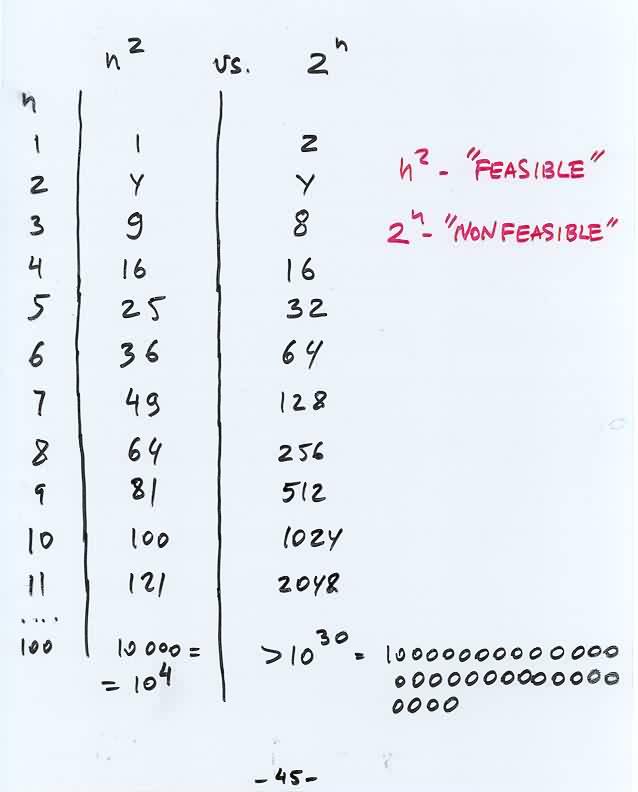 n² vs. 2ⁿ
n
1 1 2
2 4 4
3 9 8
4 16 16
5 25 32
6 36 64
7 49 128
8 64 256
9 81 512
10 100 1024
11 121 2048
....
100 10 000 = >10³⁰ = 10000000000000
= 10⁴ 0000000000000
0000
n² - "FEASIBLE"
2ⁿ - "NONFEASIBLE"
- 45 -